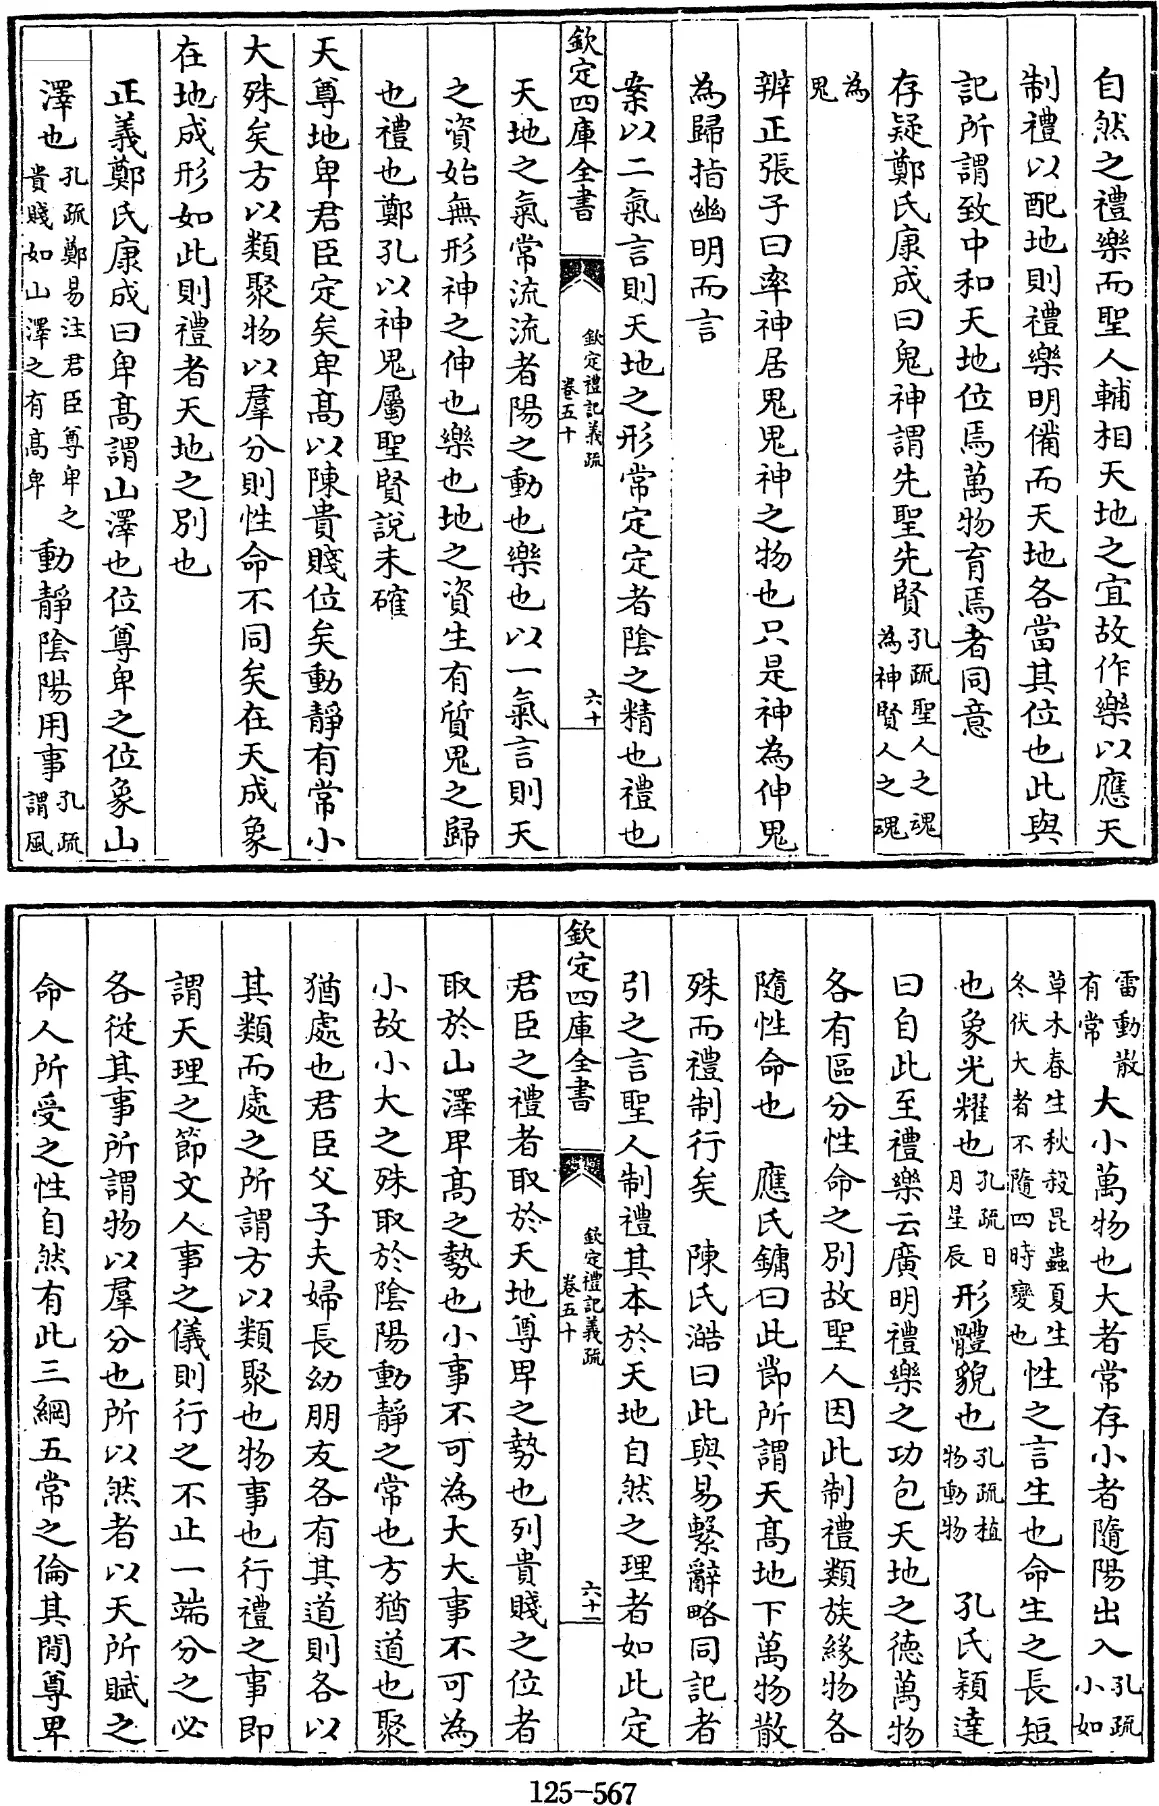 自然之禮樂而聖人輔相天地之宜故作樂以應天
制禮以配地則禮樂明備而天地各當其位也此與
記所謂致中和天地位焉萬物育焉者同意
存疑鄭氏康成曰鬼神謂先聖先賢孔疏聖人之魂為神賢人之魂
為鬼
辨正張子曰率神居鬼鬼神之物也只是神為伸鬼
為歸指幽明而言
案以二氣言則天地之形常定定者陰之精也禮也
欽定四庫全書 欽定禮記義疏 卷五十 六十
天地之氣常流流者陽之動也樂也以一氣言則天
之資始無形神之伸也樂也地之資生有質鬼之歸
也禮也鄭孔以神鬼屬聖賢說未確
天尊地卑君臣定矣卑高以陳貴賤位矣動靜有常小
大殊矣方以類聚物以羣分則性命不同矣在天成象
在地成形如此則禮者天地之別也
正義鄭氏康成曰卑高謂山澤也位尊卑之位象山
澤也孔疏鄭易注君臣尊卑之貴賤如山澤之有高卑動靜陰陽用事孔疏謂風
雷動散有常大小萬物也大者常存小者隨陽出入孔疏小如
草木春生秋殺昆蟲夏生冬伏大者不隨四時變也性之言生也命生之長短
也象光耀也孔疏日月星辰形體貌也孔疏植物動物 孔氏穎達
曰自此至禮樂云廣明禮樂之功包天地之德萬物
各有區分性命之別故聖人因此制禮類族緣物各
隨性命也 應氏鏞曰此節所謂天高地下萬物散
殊而禮制行矣 陳氏澔曰此與易繫辭略同記者
引之言聖人制禮其本於天地自然之理者如此定
欽定四庫全書 欽定禮記義疏 卷五十 六十一
君臣之禮者取於天地尊卑之勢也列貴賤之位者
取於山澤卑高之勢也小事不可為大大事不可為
小故小大之殊取於陰陽動靜之常也方猶道也聚
猶處也君臣父子夫婦長幼朋友各有其道則各以
其類而處之所謂方以類聚也物事也行禮之事即
謂天理之節文人事之儀則行之不止一端分之必
各從其事所謂物以羣分也所以然者以天所賦之
命人所受之性自然有此三綱五常之倫其閒尊卑
125-567